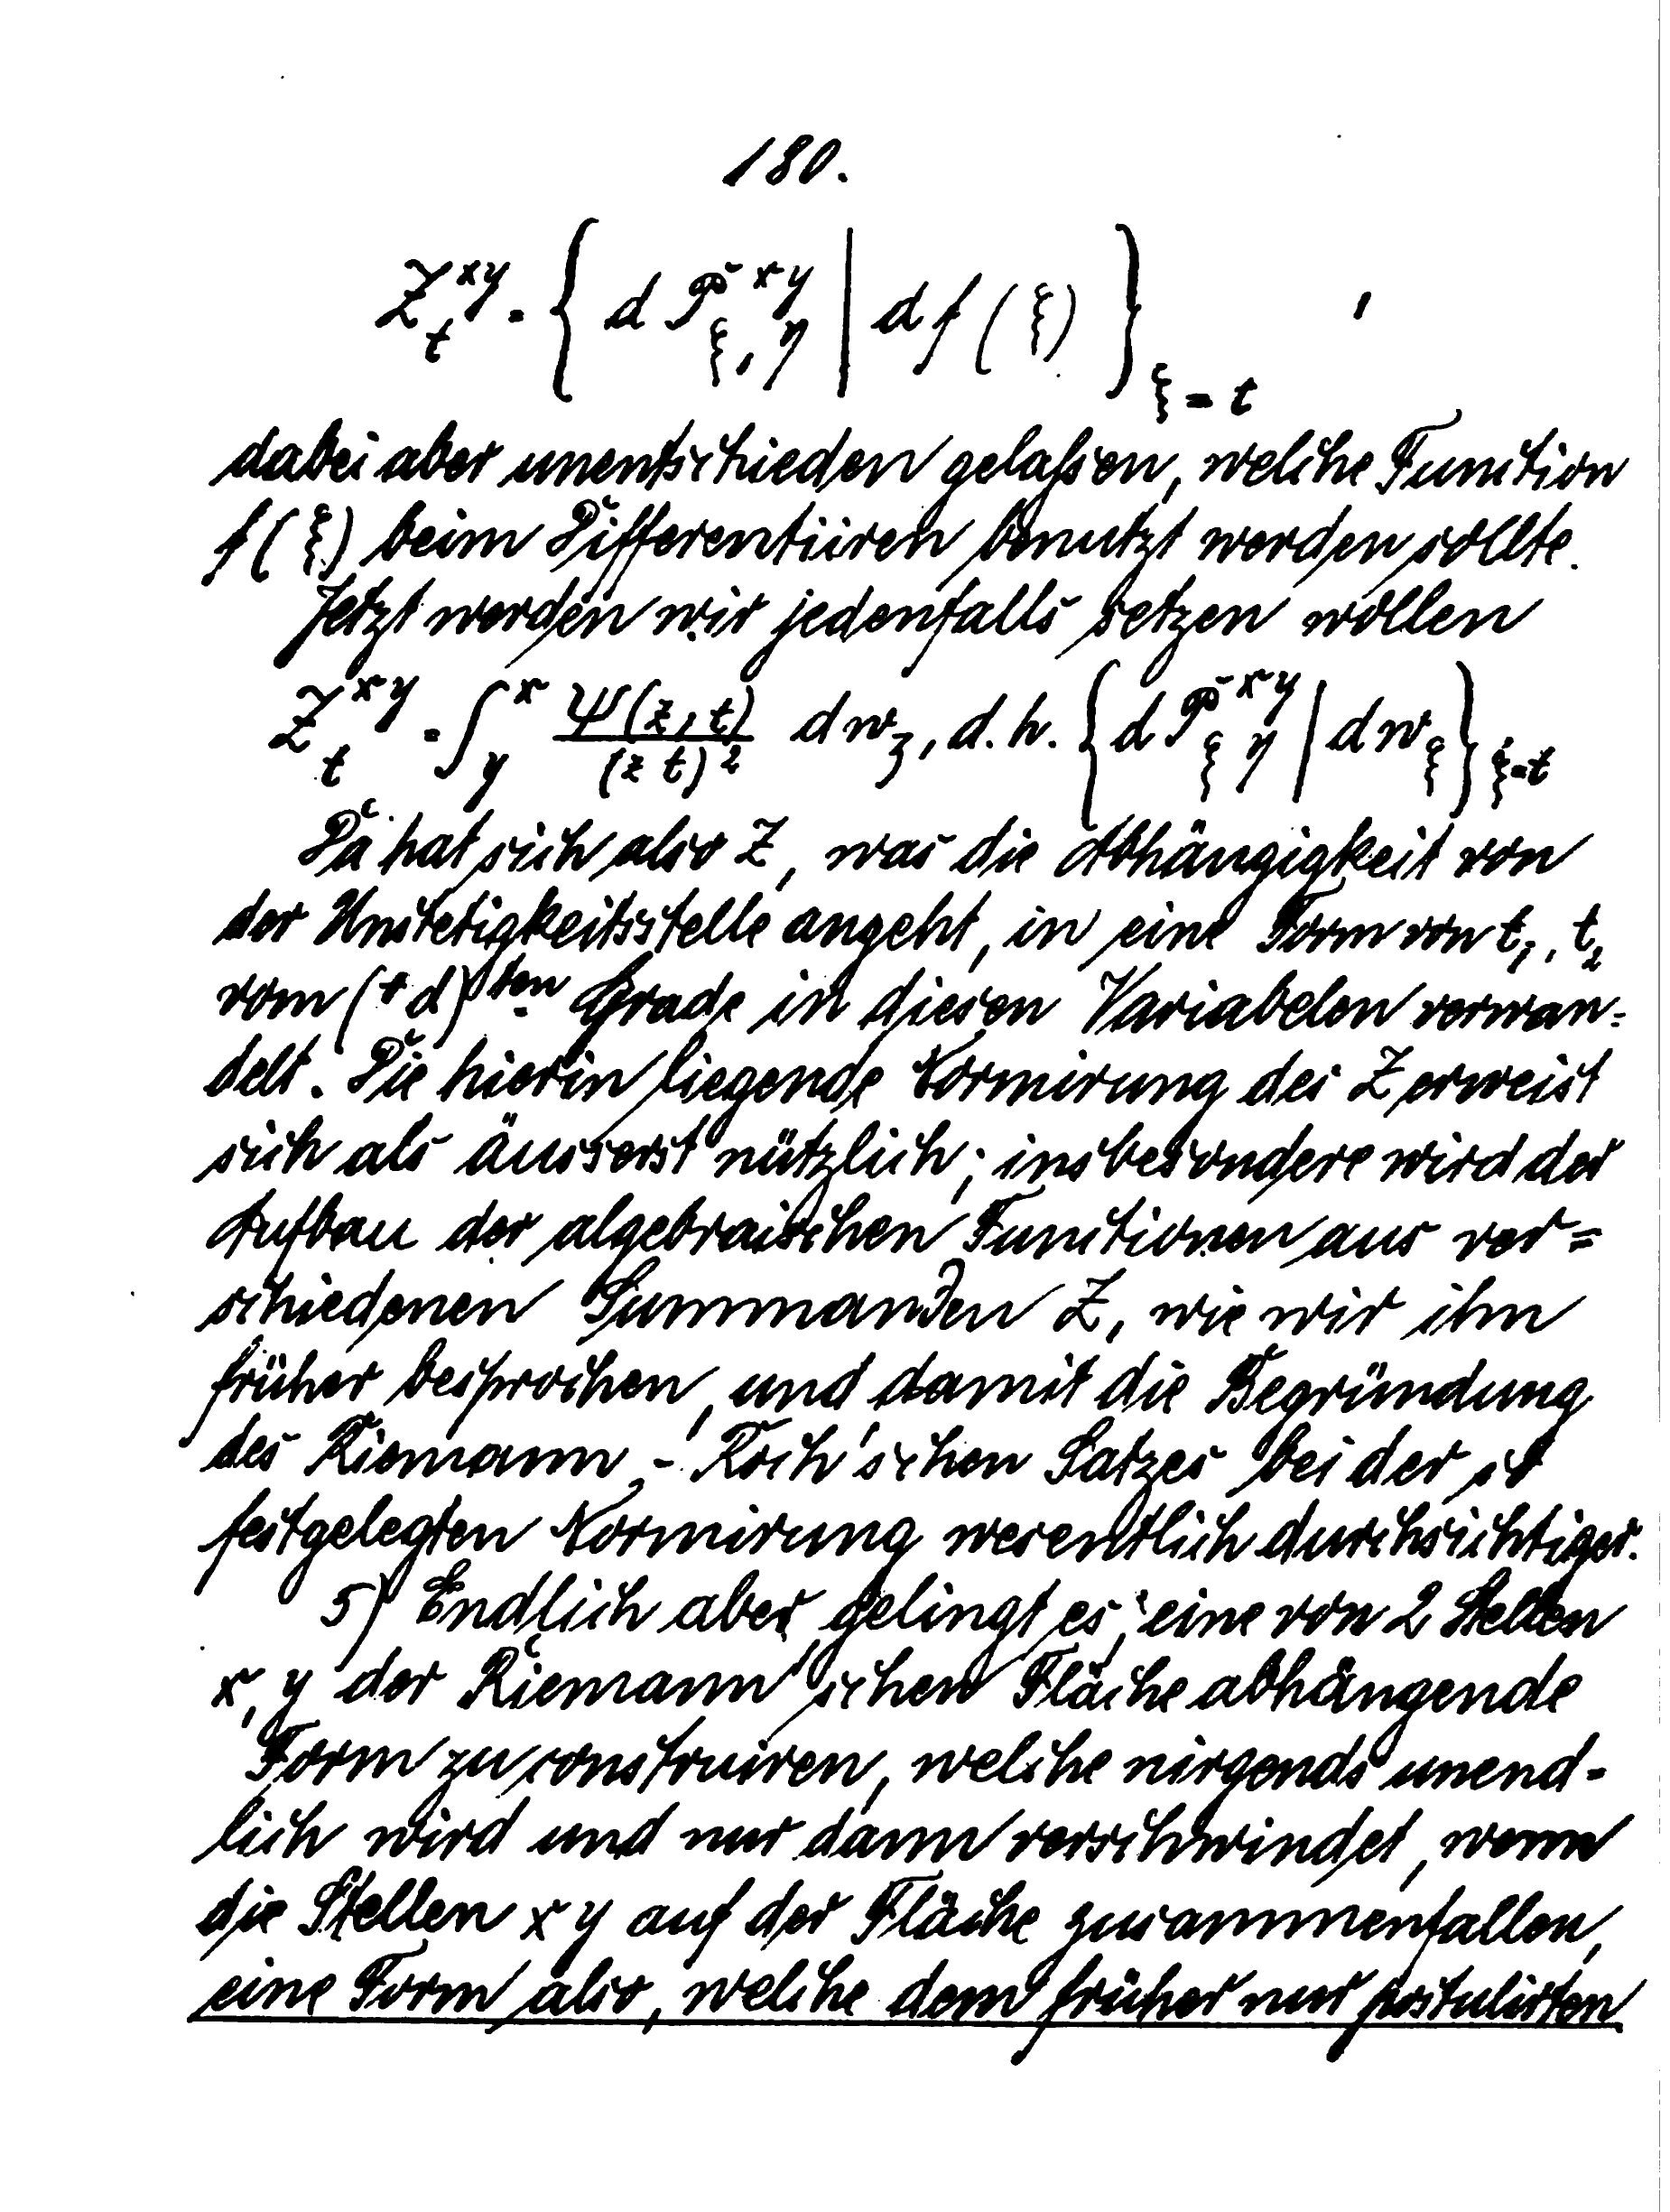 180.
Z_t^{xy} = { d P_{ξ, η}^{xy} | d f (ξ) }_{ξ = t} ,
dabei aber unentschieden gelaßen, welche Function
f (ξ) beim Differentiiren benutzt werden sollte.
Jetzt werden wir jedenfalls setzen wollen
Z_t^{xy} = ∫_y^x Ψ(z, t)/(z t)² dw_z, d. h. { d P_{ξ η}^{xy} | dw_ξ }_{ξ=t}
Da hat sich also Z, was die Abhängigkeit von
der Unstetigkeitsstelle angeht, in eine Form von t₁, t₂
vom (+ d)ten Grade in diesen Variabelen verwan=
delt. Die hierin liegende Normirung des Z erweist
sich als äusserst nützlich; insbesondere wird der
Aufbau der algebraischen Functionen aus ver=
schiedenen Summanden Z, wie wir ihn
früher besprochen, und damit die Begründung
des Riemann-Roch'schen Satzes bei der so
festgelegten Normirung wesentlich durchsichtiger.
5) Endlich aber gelingt es, eine von 2 Stellen
x, y der Riemann'schen Fläche abhängende
Form zu construiren, welche nirgends unend-
lich wird und nur dann verschwindet, wenn
die Stellen x y auf der Fläche zusammenfallen,
eine Form also, welche dem früher nur postulirten